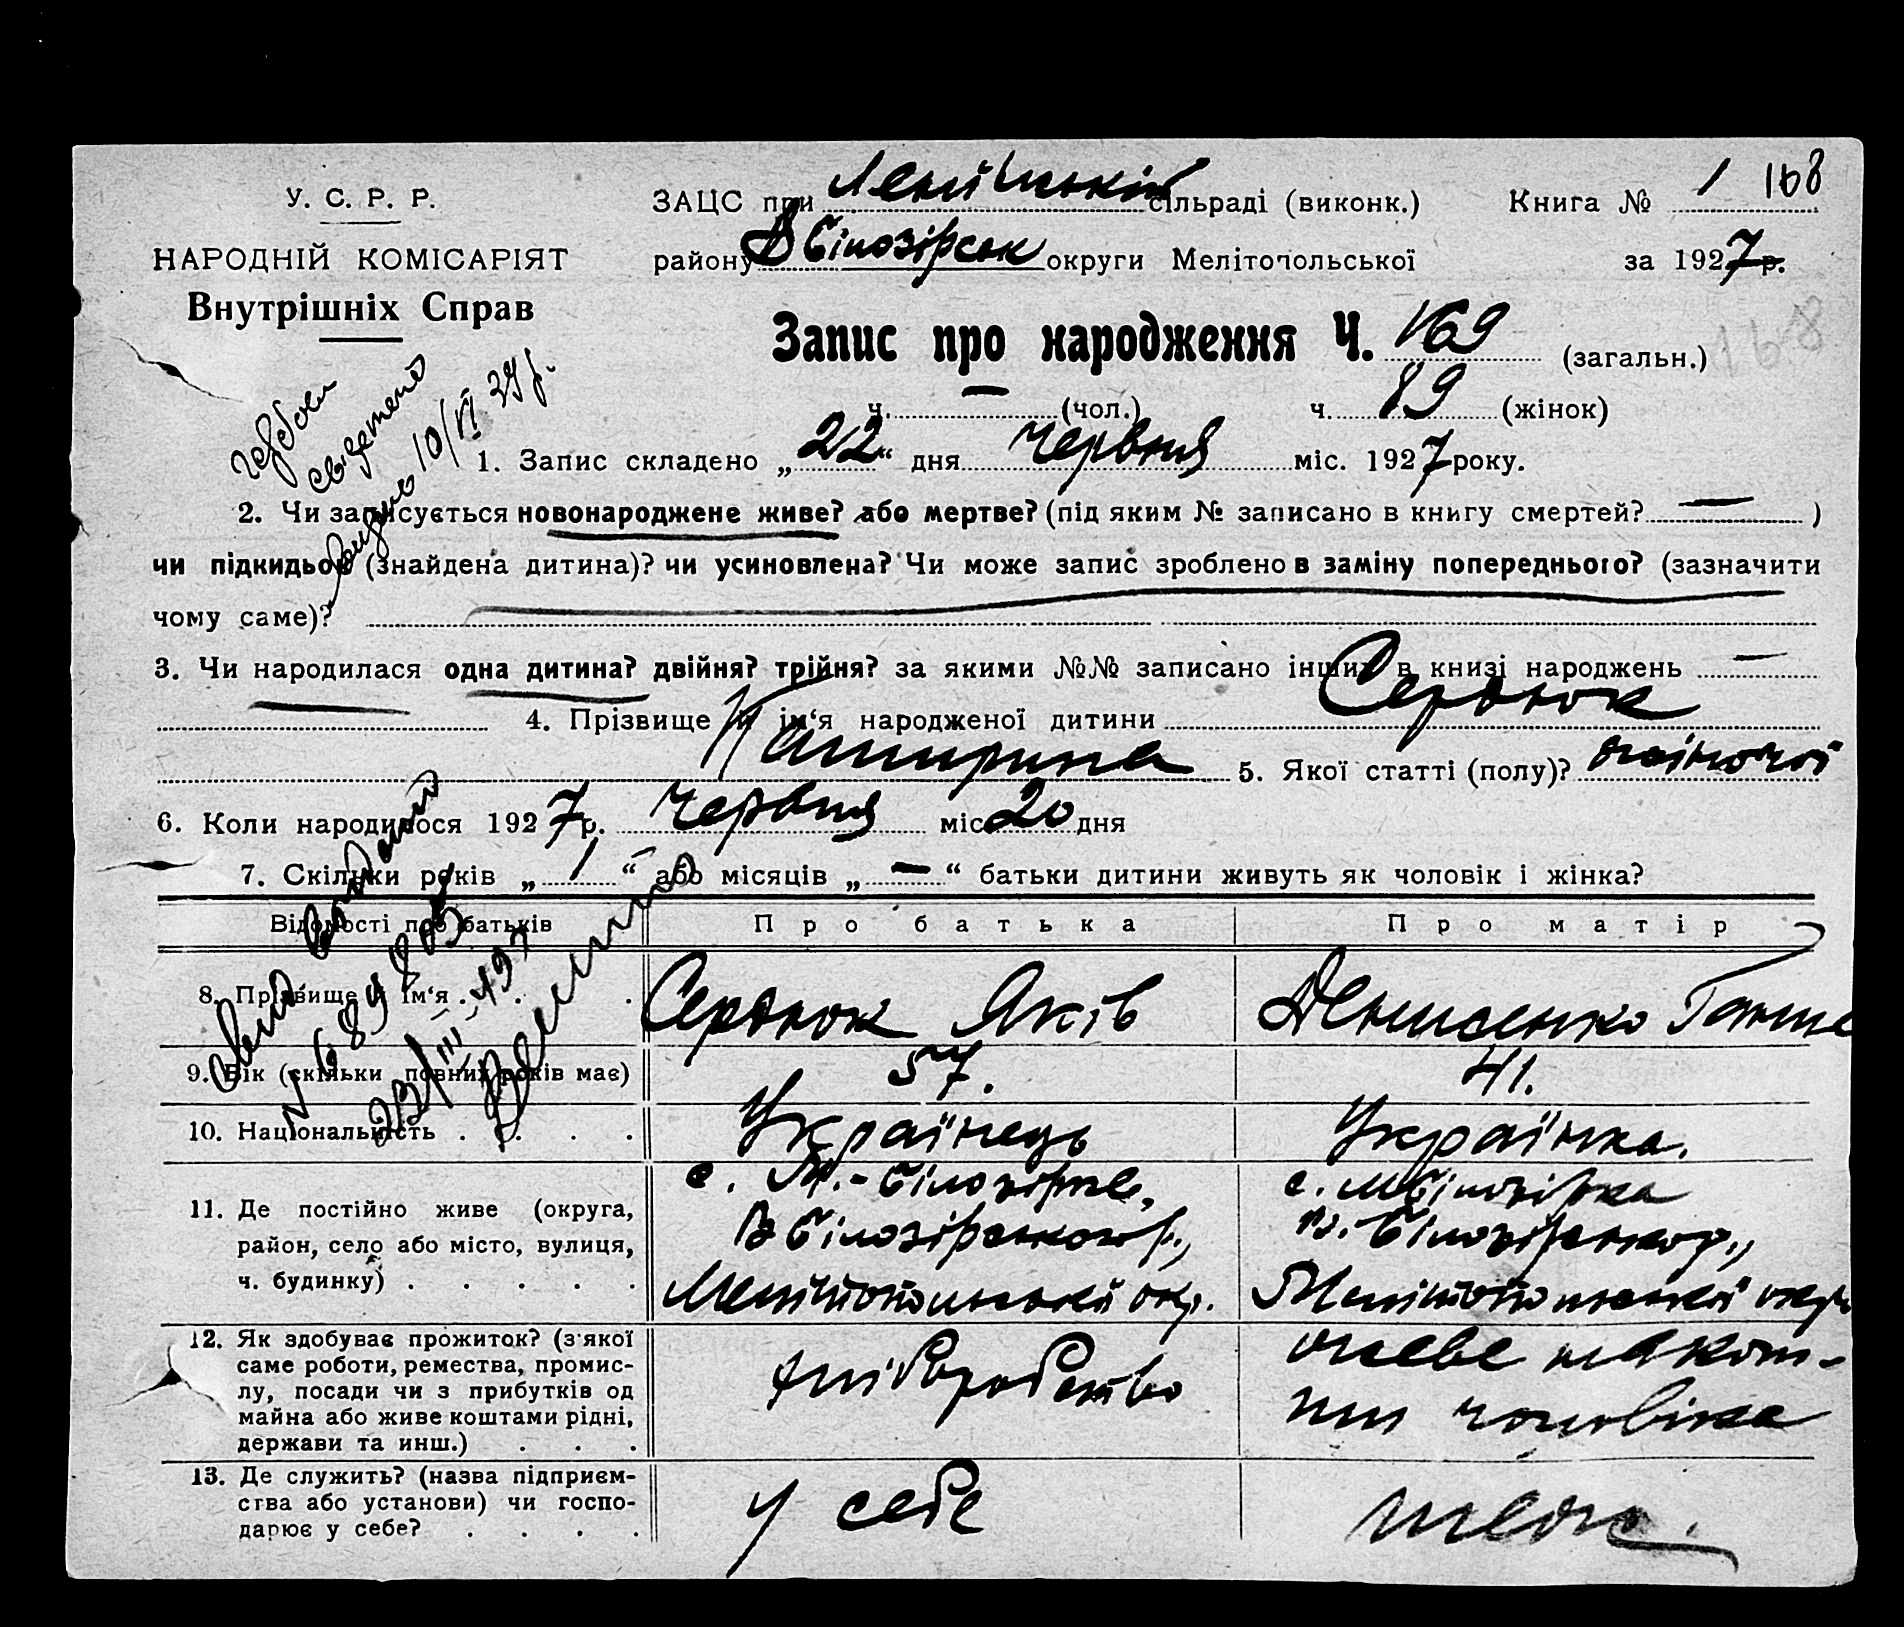 У. С. Р. Р.
НАРОДНІЙ КОМІСАРІЯТ
Внутрішніх Справ
ЗАЦС при Ленінській сільраді (виконк.) Книга № 1 168
району В Білозірськ округи Мелітопольської за 1927 р.
168
Запис про народження Ч. 169 (загальн.)
ч. — (чол.) ч. 89 (жінок)
1. Запис складено „22“ дня червня міс. 1927 року.
2. Чи записується новонароджене живе? або мертве? (під яким № записано в книгу смертей? — )
чи підкидьок (знайдена дитина)? чи усиновлена? Чи може запис зроблено в заміну попереднього? (зазначити
чому саме)?
3. Чи народилася одна дитина? двійня? трійня? за якими №№ записано інших в книзі народжень —
— 4. Прізвище й ім‘я народженої дитини Сердюк
Катирина 5. Якої статті (полу)? жіночої
6. Коли народилося 1927 р. червня міс 20 дня
7. Скільки років „1“ або місяців „—“ батьки дитини живуть як чоловік і жінка?
Відомості про батьків Про батька Про матір
8. Прізвище й ім‘я . . . Сердюк Яків Денисенко Ганна
9. Вік (скільки повних років має) 57. 41.
10. Національність . . . . Українець Українка.
11. Де постійно живе (округа,
район, село або місто, вулиця,
ч. будинку) . . . . .
с. М.-Білозірке,
В Білозірського р.,
Мелітопольській окр.
с. М Білозірка
В. Білозірског р.,
Мелітопольської окр
12. Як здобуває прожиток? (з'якої
саме роботи, ремества, промис-
лу, посади чи з прибутків од
майна або живе коштами рідні,
держави та инш.) . . .
хліборобство
живе на кош-
ти чоловіка
13. Де служить? (назва підприєм-
ства або установи) чи госпо-
дарює у себе? . . . .
у себе
теж.
10/VI 39 р.
N 689803
23/III-497